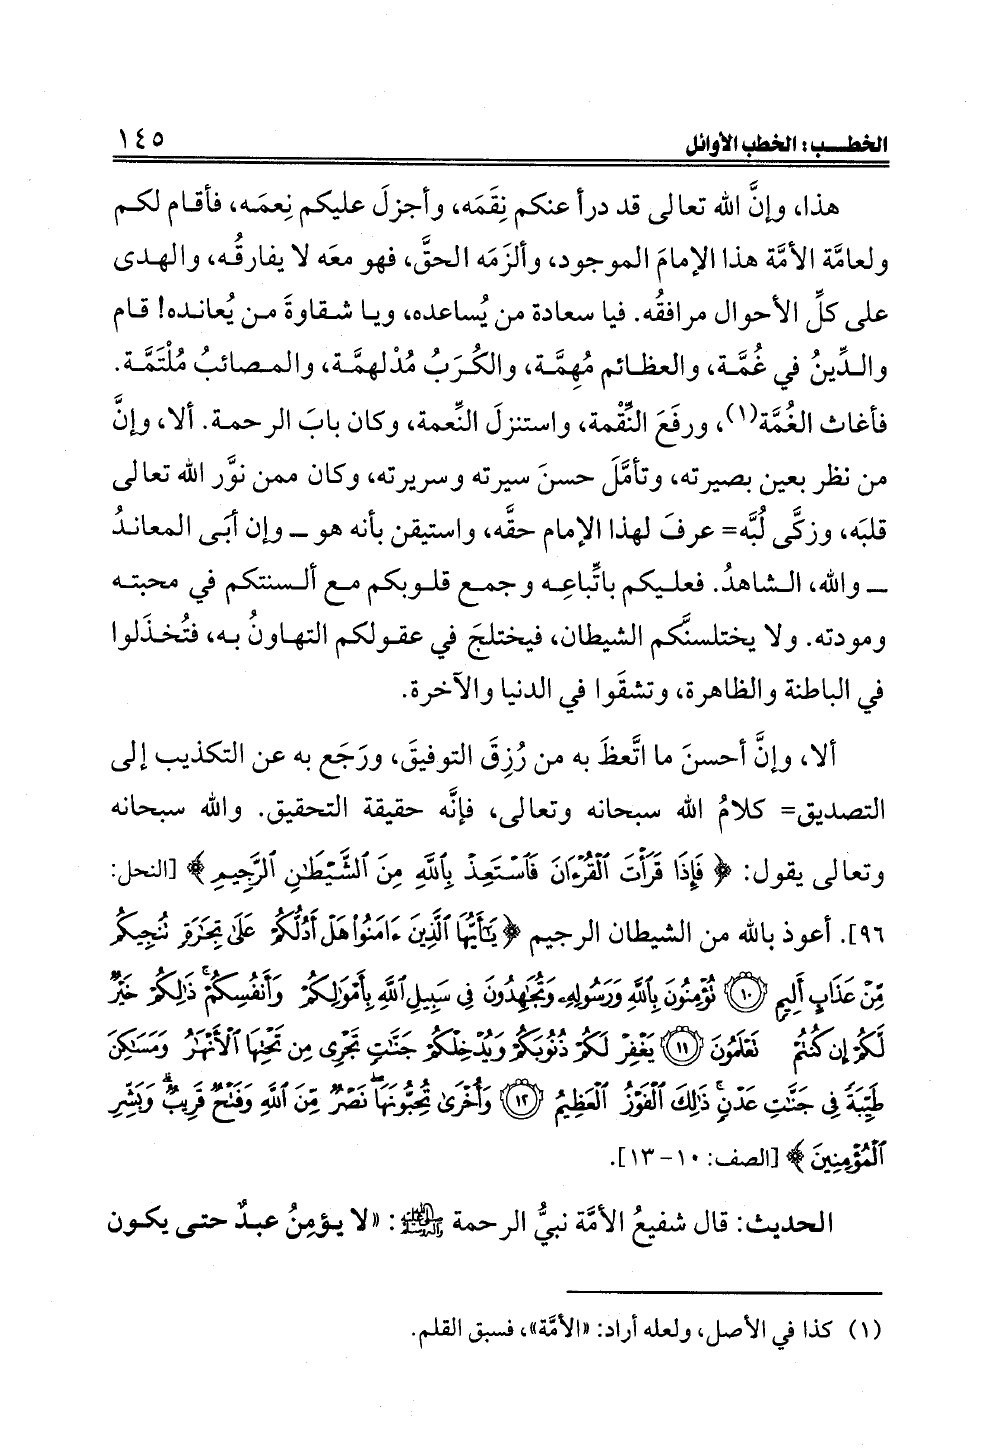 الخطـــب: الخطب الأوائل ١٤٥
هذا، وإنَّ الله تعالى قد درأ عنكم نِقَمَه، وأجزلَ عليكم نِعمَه، فأقام لكم
ولعامَّة الأمَّة هذا الإمامَ الموجود، وألزَمَه الحقَّ، فهو معَه لا يفارقُه، والهدى
على كلِّ الأحوال مرافقُه. فيا سعادة من يُساعده، ويا شقاوةَ من يُعانده! قام
والدِّينُ في غُمَّة، والعظائم مُهِمَّة، والكُرَبُ مُدْلهمَّة، والمصائبُ مُلْتَمَّة.
فأغاث الغُمَّة(١)، ورفَعَ النِّقْمة، واستنزلَ النِّعمة، وكان بابَ الرحمة. ألا، وإنَّ
من نظر بعين بصيرته، وتأمَّلَ حسنَ سيرته وسريرته، وكان ممن نوَّر الله تعالى
قلبَه، وزكَّى لُبَّه= عرفَ لهذا الإمام حقَّه، واستيقن بأنه هو ــ وإن أبَى المعاندُ
ــ والله، الشاهدُ. فعليكم باتِّباعِه وجمع قلوبكم مع ألسنتكم في محبته
ومودته. ولا يختلسنَّكم الشيطان، فيختلجَ في عقولكم التهاونُ به، فتُخذَلوا
في الباطنة والظاهرة، وتشقَوا في الدنيا والآخرة.
ألا، وإنَّ أحسنَ ما اتَّعظَ به من رُزِقَ التوفيقَ، ورَجَع به عن التكذيب إلى
التصديق= كلامُ الله سبحانه وتعالى، فإنَّه حقيقة التحقيق. والله سبحانه
وتعالى يقول: ﴿ فَإِذَا قَرَأْتَ ٱلْقُرْءَانَ فَٱسْتَعِذْ بِٱللَّهِ مِنَ ٱلشَّيْطَٰنِ ٱلرَّجِيمِ ﴾ [النحل:
٩٦]. أعوذ بالله من الشيطان الرجيم ﴿ يَٰٓأَيُّهَا ٱلَّذِينَ ءَامَنُوا۟ هَلْ أَدُلُّكُمْ عَلَىٰ تِجَٰرَةٍ تُنجِيكُم
مِّنْ عَذَابٍ أَلِيمٍ ١٠ تُؤْمِنُونَ بِٱللَّهِ وَرَسُولِهِۦ وَتُجَٰهِدُونَ فِى سَبِيلِ ٱللَّهِ بِأَمْوَٰلِكُمْ وَأَنفُسِكُمْ ۚ ذَٰلِكُمْ خَيْرٌ
لَّكُمْ إِن كُنتُمْ تَعْلَمُونَ ١١ يَغْفِرْ لَكُمْ ذُنُوبَكُمْ وَيُدْخِلْكُمْ جَنَّٰتٍ تَجْرِى مِن تَحْتِهَا ٱلْأَنْهَٰرُ وَمَسَٰكِنَ
طَيِّبَةً فِى جَنَّٰتِ عَدْنٍ ۚ ذَٰلِكَ ٱلْفَوْزُ ٱلْعَظِيمُ ١٢ وَأُخْرَىٰ تُحِبُّونَهَا ۖ نَصْرٌ مِّنَ ٱللَّهِ وَفَتْحٌ قَرِيبٌ ۗ وَبَشِّرِ
ٱلْمُؤْمِنِينَ ﴾ [الصف: ١٠-١٣].
الحديث: قال شفيعُ الأمَّة نبيُّ الرحمة ﷺ: «لا يؤمِنُ عبدٌ حتى يكون
(١) كذا في الأصل، ولعله أراد: «الأمَّة»، فسبق القلم.